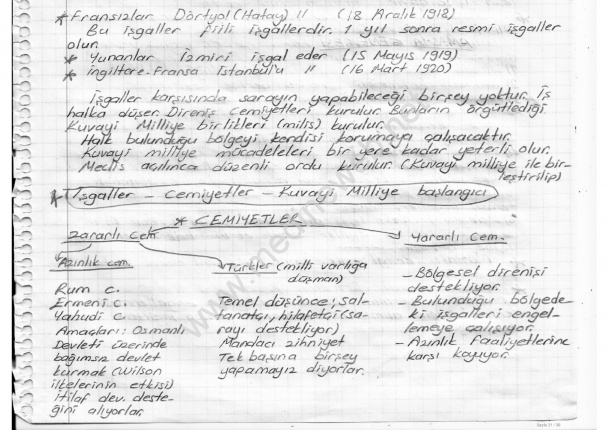 * Fransızlar Dörtyol (Hatay) 11 (18 Aralık 1918)
Bu işgaller fiili işgallerdir. 1 yıl sonra resmi işgaller
olur.
* Yunanlar İzmiri işgal eder (15 Mayıs 1919)
* ingiltere-Fransa İstanbul'u 11 (16 Mart 1920)
İşgaller karşısında sarayın yapabileceği birşey yoktur. İş
halka düşer. Direniş Cemiyetleri kurulur. Bunların örgütlediği
Kuvayi Milliye birlikleri (milis) kurulur.
Halk bulunduğu bölgeyi kendisi korumaya çalışacaktır.
Kuvayi milliye mücadeleleri bir yere kadar yeterli olur.
Meclis açılınca düzenli ordu kurulur. (Kuvayi milliye ile bir-
leştirilip)
* İşgaller - Cemiyetler - Kuvayi Milliye başlangıcı
* CEMİYETLER
Zararlı Cem
Yararlı Cem.
Azınlık cem.
Rum c.
Ermeni c.
Yahudi c
Amaçları: Osmanlı
Devleti üzerinde
bağımsız devlet
kurmak (Wilson
ilkelerinin etkisi)
itilaf dev. deste-
ğini alıyorlar.
Türkler (milli varlığa
düşman)
Temel düşünce; sal-
tanatçı, hilafetçi (sa-
rayı destekliyor)
Mandacı zihniyet
Tek başına birşey
yapamayız diyorlar.
- Bölgesel direnişi
destekliyor.
- Bulunduğu bölgede-
ki işgalleri engel-
lemeye çalışıyor.
- Azınlık faaliyetlerine
karşı koyuyor.